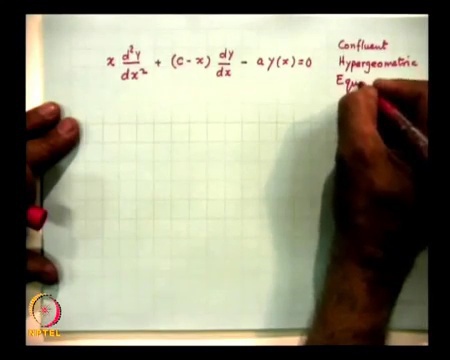 x d²y/dx² + (c - x) dy/dx - a y(x) = 0
Confluent
Hypergeometric
Equ
NPTEL